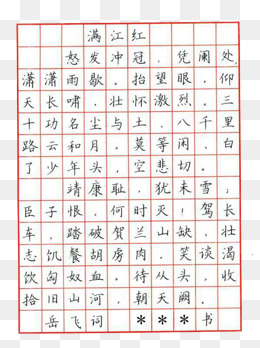 满江红
怒发冲冠，凭阑处
潇潇雨歇。抬望眼，仰
天长啸，壮怀激烈。三
十功名尘与土，八千里
路云和月。莫等闲、白
了少年头，空悲切。
靖康耻，犹未雪；
臣子恨，何时灭！驾长
车，踏破贺兰山缺，壮
志饥餐胡虏肉，笑谈渴
饮匈奴血。待从头，收
拾旧山河，朝天阙。
岳飞词 *** 书